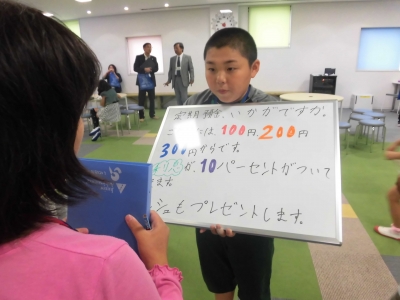 定期預金、いかがですか。
は、100円、200円
300円からです。
が、10パーセントがついて
ます。
シュもプレゼントします。